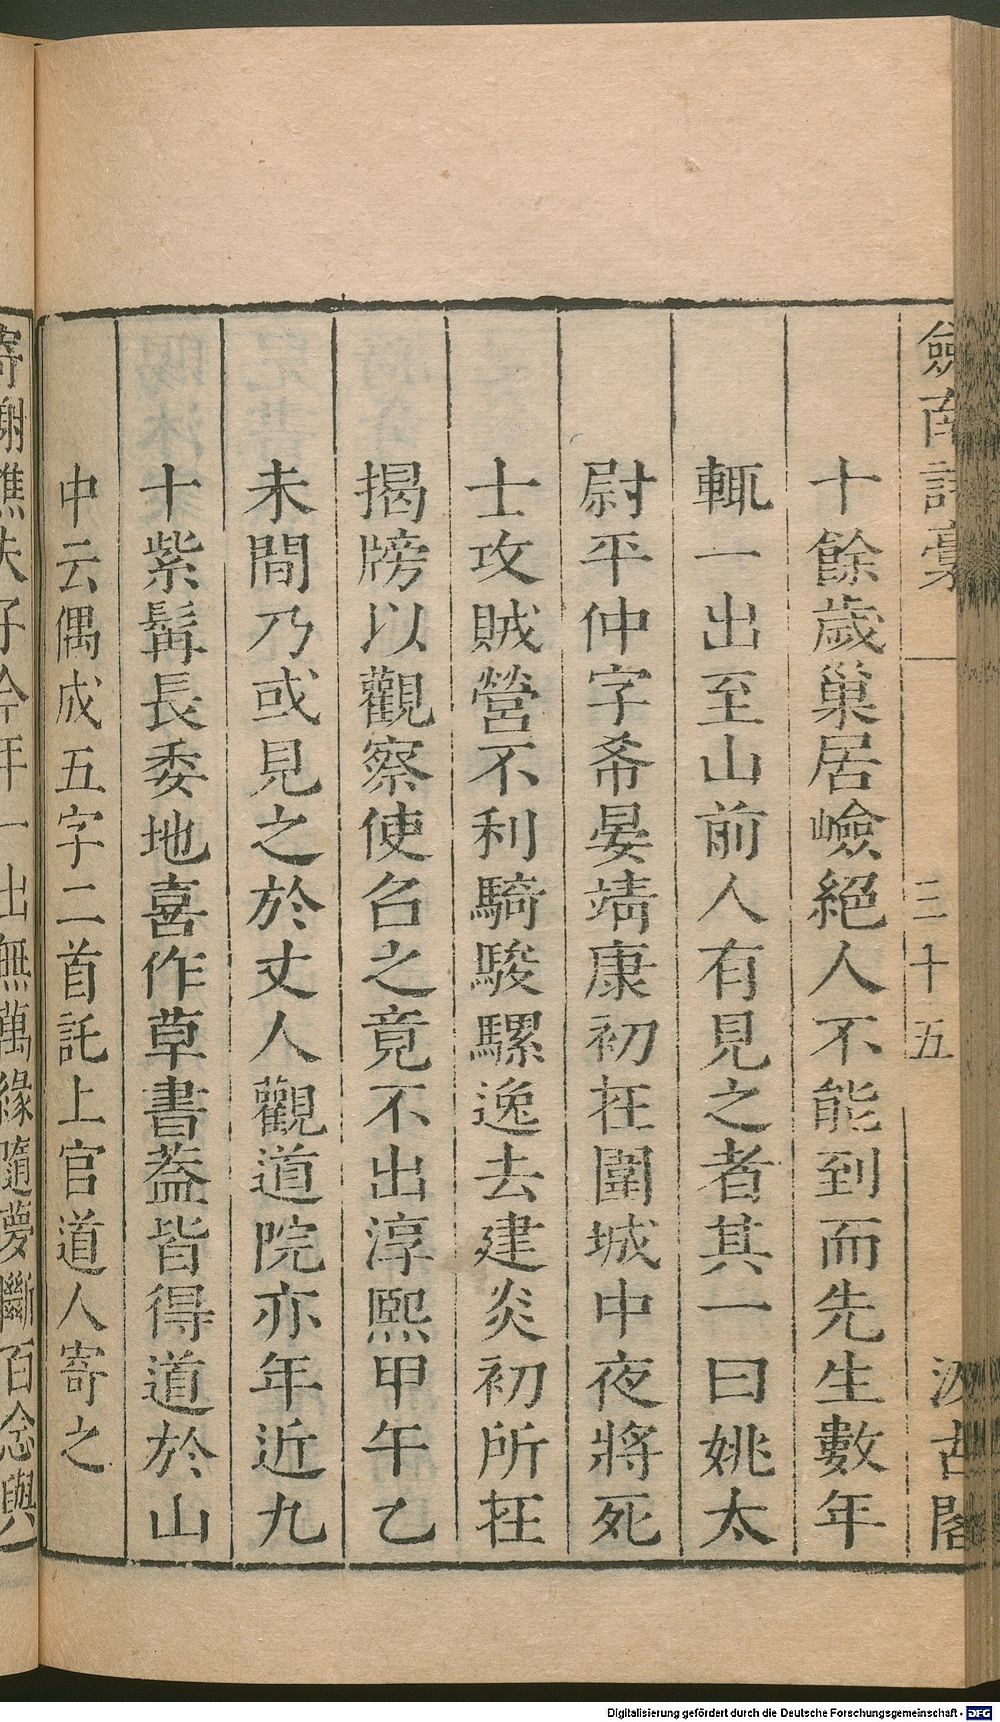 劍南詩藁
三十五
汲古閣
十餘歲巢居嶮絕人不能到而先生數年
輒一出至山前人有見之者其一曰姚太
尉平仲字希晏靖康初在圍城中夜將死
士攻賊營不利騎駿騾逸去建炎初所在
揭牓以觀察使召之竟不出淳熙甲午乙
未間乃或見之於丈人觀道院亦年近九
十紫髯長委地喜作草書蓋皆得道於山
中云偶成五字二首託上官道人寄之
寄謝譙夫子今年一出無萬緣隨夢斷百念與
Digitalisierung gefördert durch die Deutsche Forschungsgemeinschaft - DFG